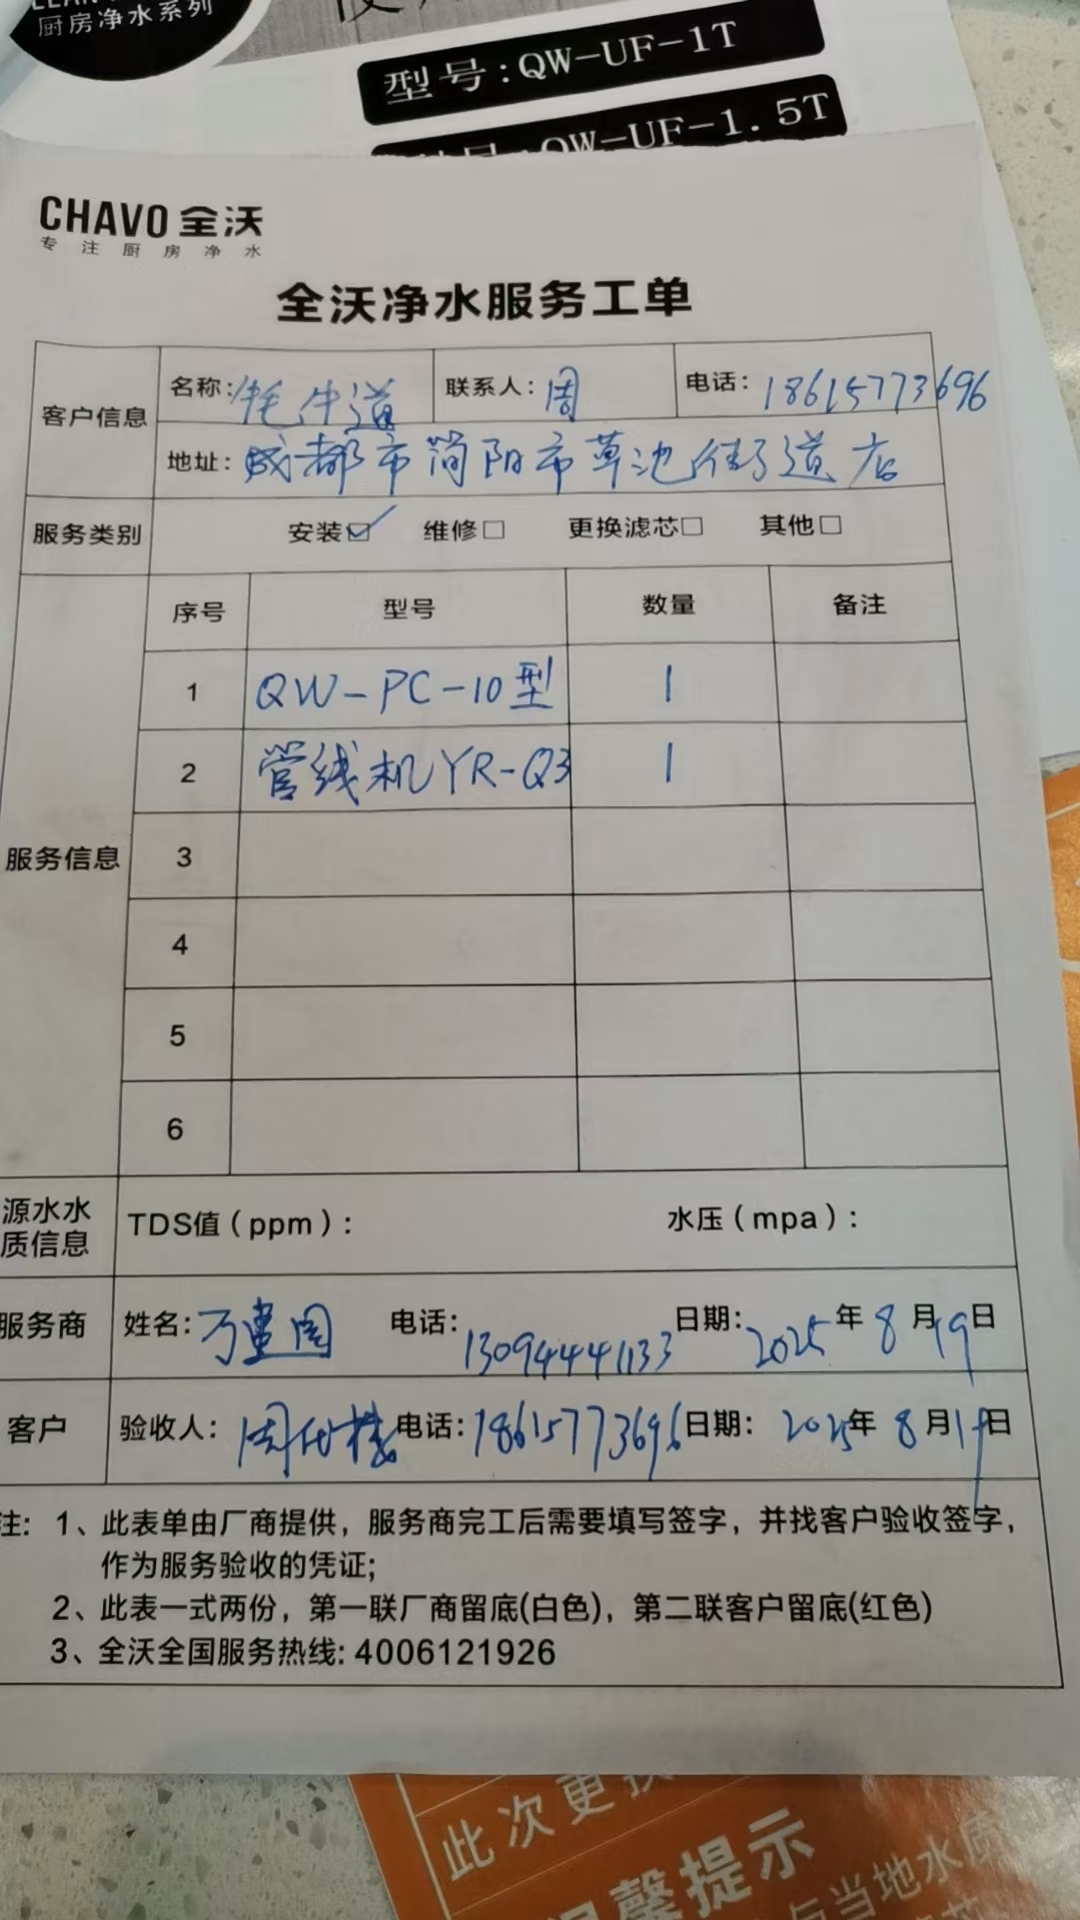 厨房净水系列
型号:QW-UF-1T
QW-UF-1.5T
CHAVO 全沃
专注厨房净水
全沃净水服务工单
客户信息 名称: 牦牛道 联系人: 周 电话: 18615773696
地址: 成都市简阳市草池街道店
服务类别 安装☑ 维修□ 更换滤芯□ 其他□
序号 型号 数量 备注
1 QW-PC-10型 1
2 管线机YR-Q3 1
服务信息 3
4
5
6
源水水质信息 TDS值(ppm): 水压(mpa):
服务商 姓名: 电话: 13094441133 日期: 2025年8月19日
客户 验收人: 周 电话: 18615773696 日期: 2025年8月19日
注: 1、此表单由厂商提供，服务商完工后需要填写签字，并找客户验收签字，
作为服务验收的凭证;
2、此表一式两份，第一联厂商留底(白色)，第二联客户留底(红色)
3、全沃全国服务热线: 4006121926
此次更换
温馨提示
与当地水质